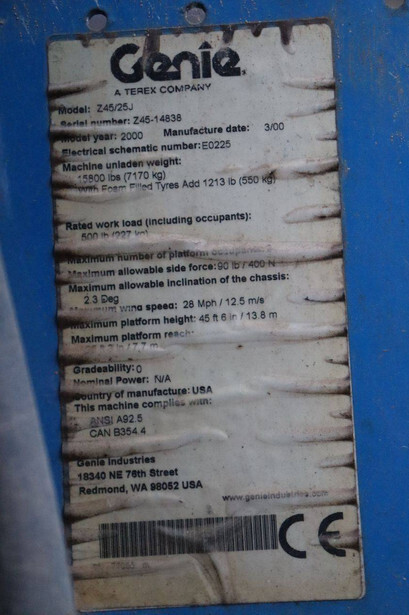 Genie
A TEREX COMPANY
Model: Z45/25J
Serial number: Z45-14838
Model year: 2000 Manufacture date: 3/00
Electrical schematic number: E0225
Machine unladen weight:
15800 lbs (7170 kg)
With Foam Filled Tyres Add 1213 lb (550 kg)
Rated work load (including occupants):
500 lb (227 kg)
Maximum number of platform
Maximum allowable side force: 90 lb / 400 N
Maximum allowable inclination of the chassis:
2.3 Deg
Maximum wind speed: 28 Mph / 12.5 m/s
Maximum platform height: 45 ft 6 in / 13.8 m
Maximum platform reach:
7.7 m
Gradeability: 0
Nominal Power: N/A
Country of manufacture: USA
This machine complies with:
ANSI A92.5
CAN B354.4
Genie Industries
18340 NE 76th Street
Redmond, WA 98052 USA
www.genieindustries.com
CE